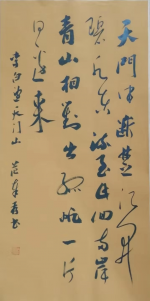 天門中断楚江開
碧水东流至此回两岸
青山相對出孤帆一片
日邊来
李白望天门山 書